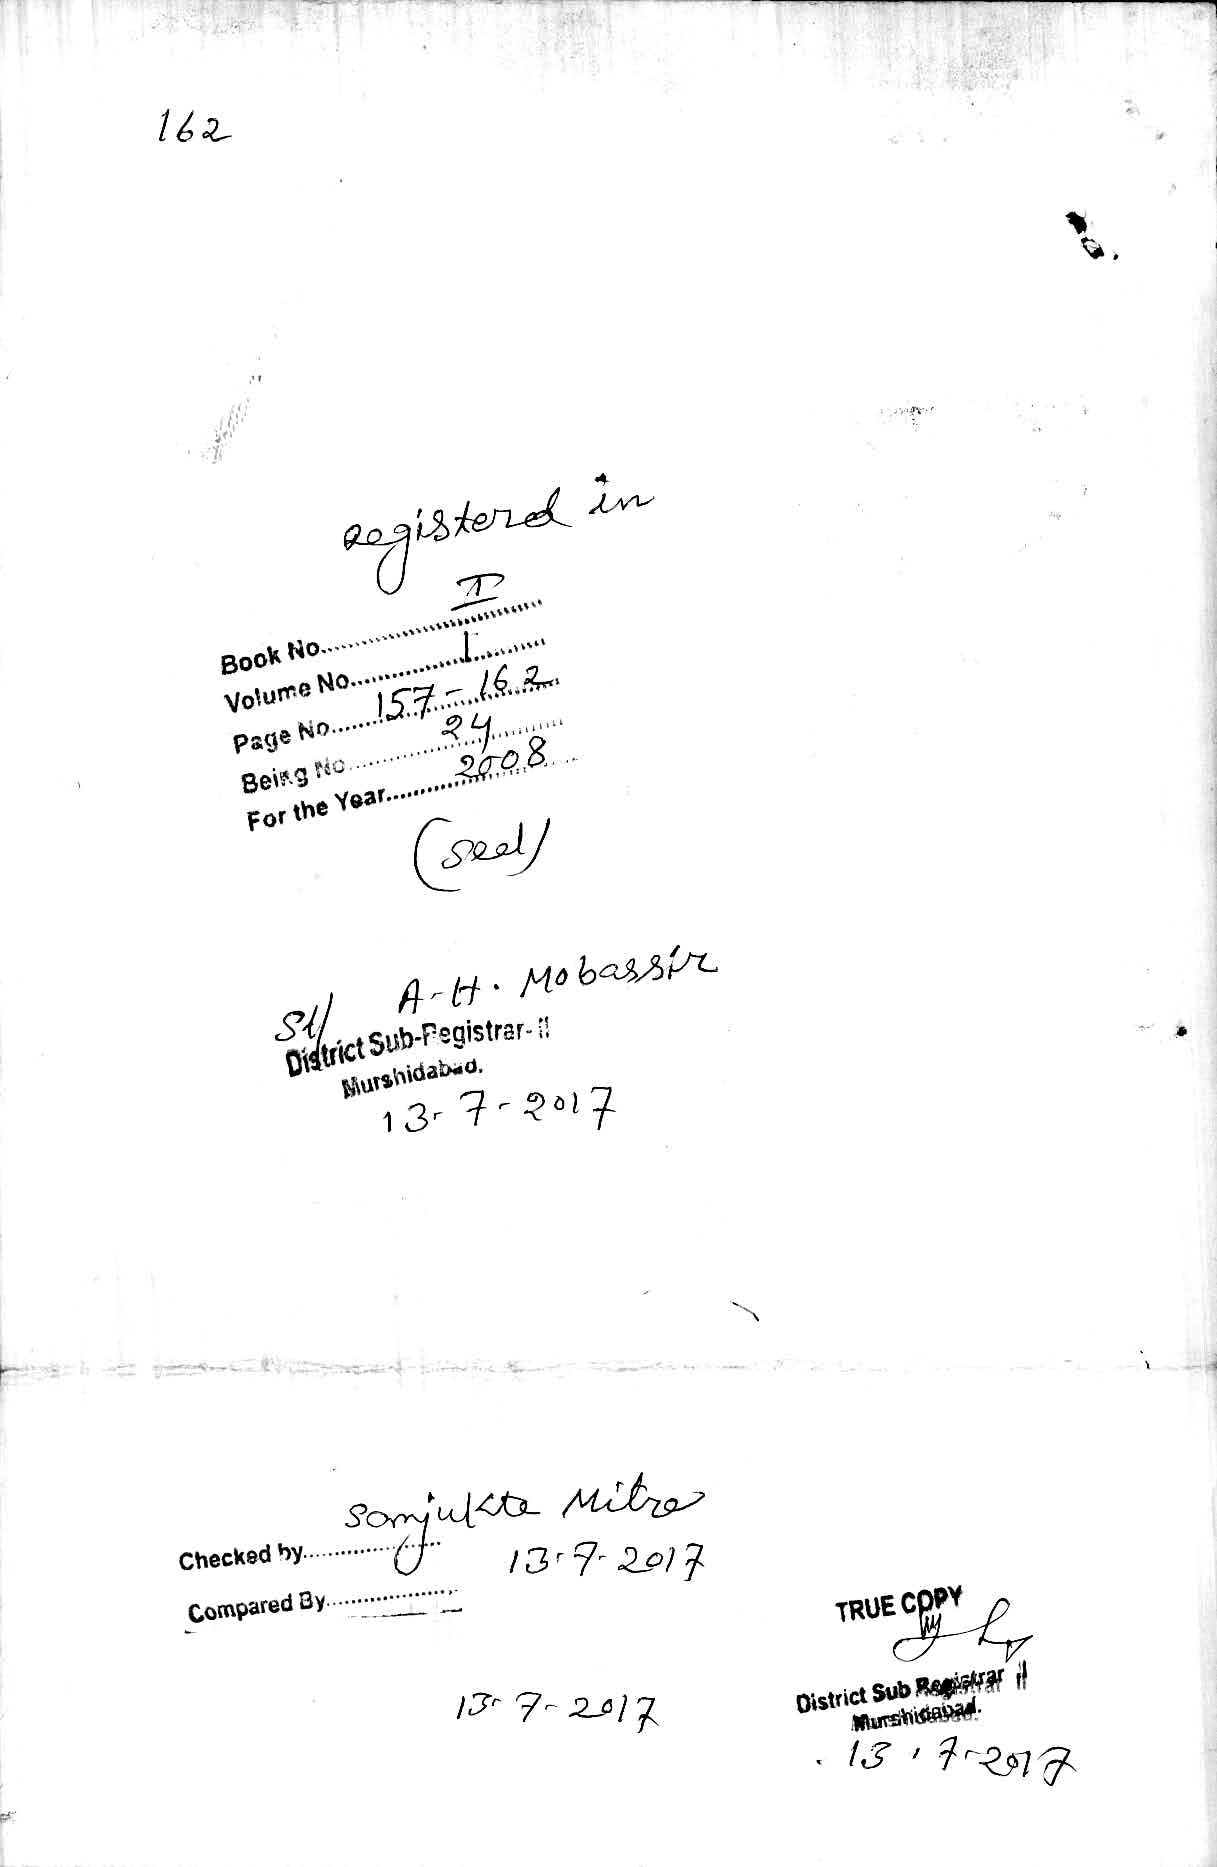 162
registered in
Book No. II
Volume No. I
Page No. 157-162
Being No. 24
For the Year 2008
(Seal)
Sd/ A-H. Mobassir
District Sub-Registrar-II
Murshidabad.
13-7-2017
Sanjukta Mitra
Checked by 13-7-2017
Compared By
13-7-2017
TRUE COPY
District Sub Registrar II
Murshidabad.
13-7-2017